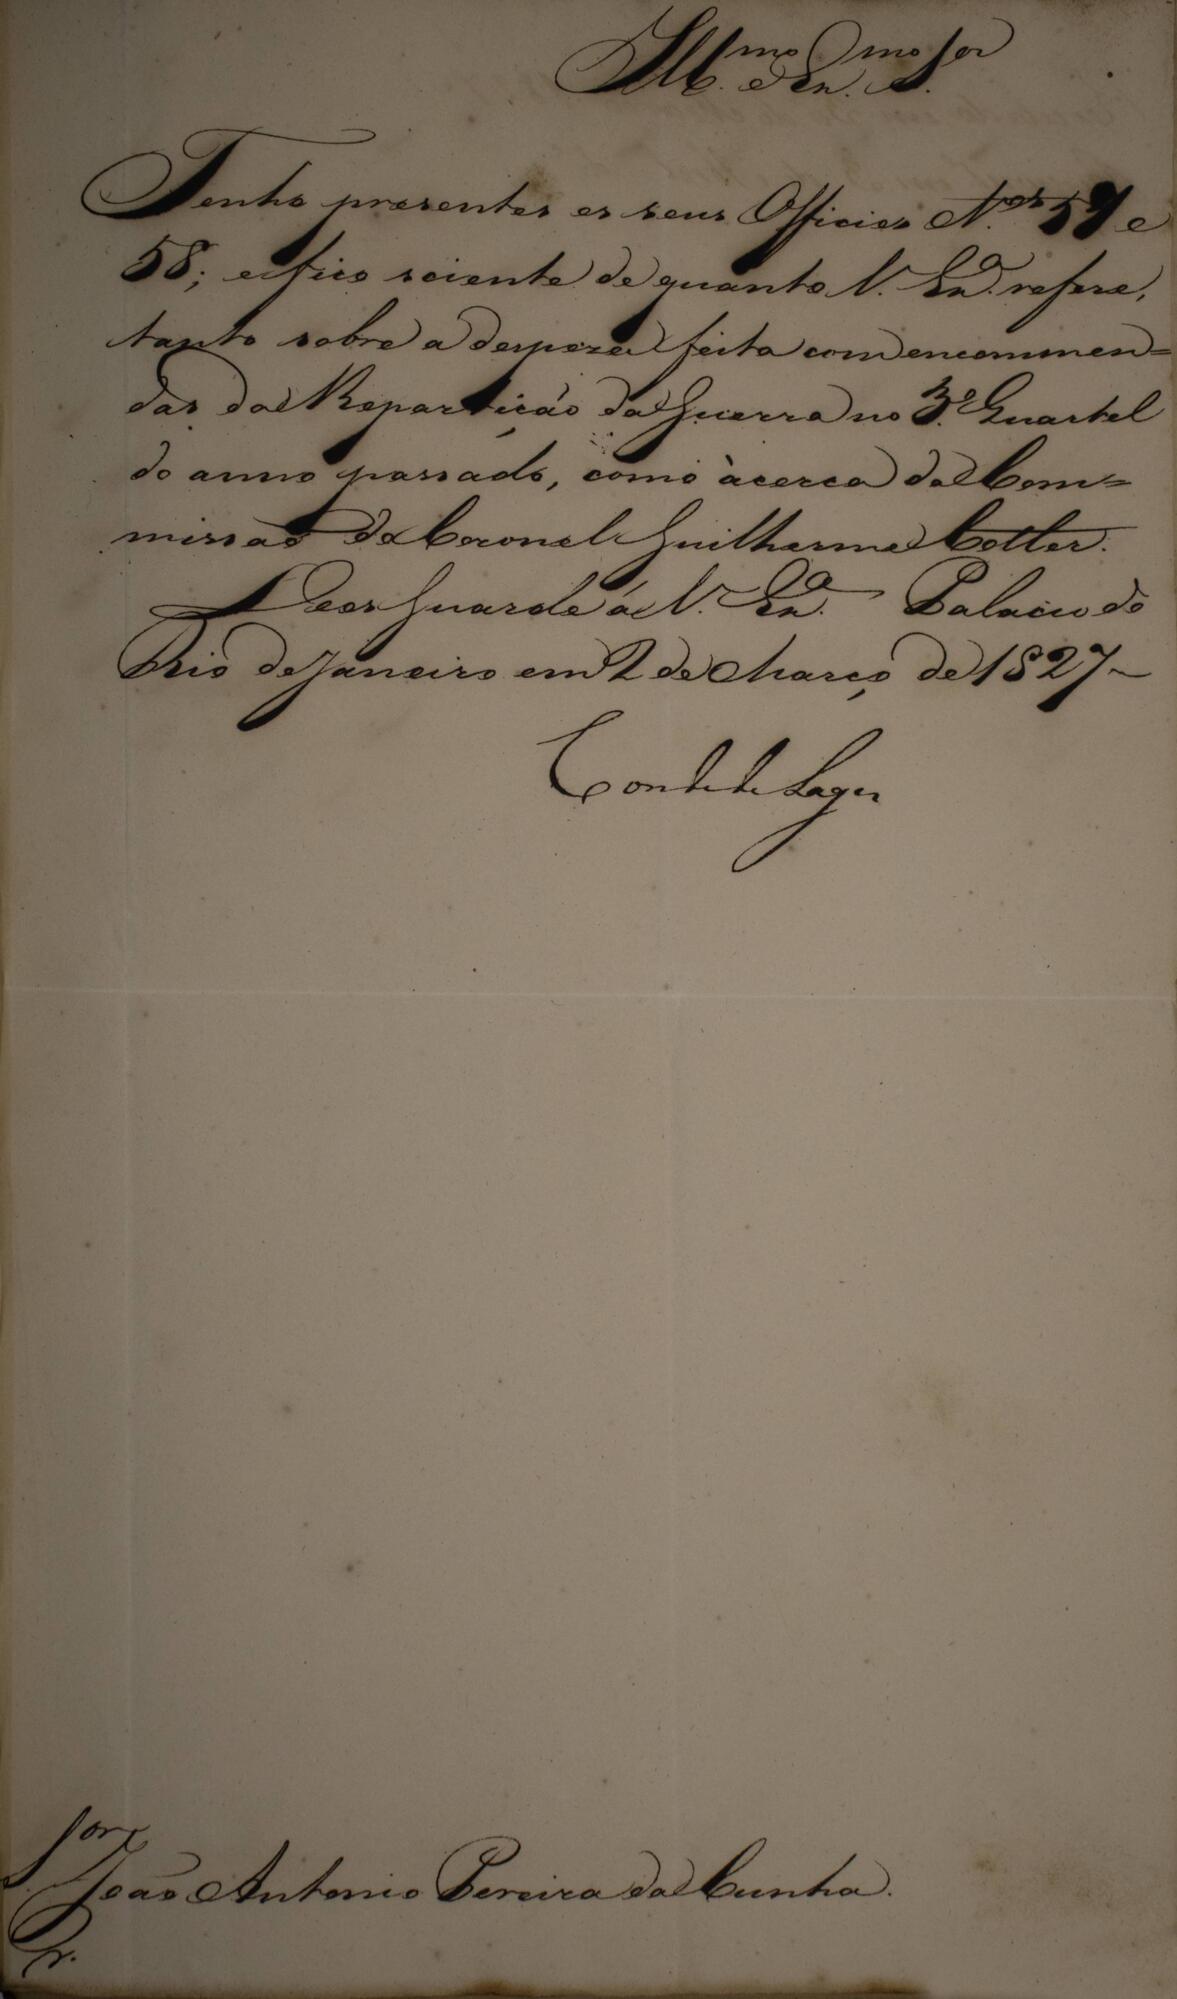 Ill.mo Ex.mo Sor
Tenho presentes os seus Officios N.os 57 e
58; e fico sciente de quanto V. Ex.a refere,
tanto sobre a despeza feita com encommen=
das da Repartição da Guerra no 3.o Quartel
do anno passado, como àcerca da Com=
missão do Coronel Guilherme Cotter.
Deos Guarde á V. Ex.a Palacio do
Rio de Janeiro em 2 de Março de 1827
Conde de Lages
Sor
João Antonio Pereira da Cunha.